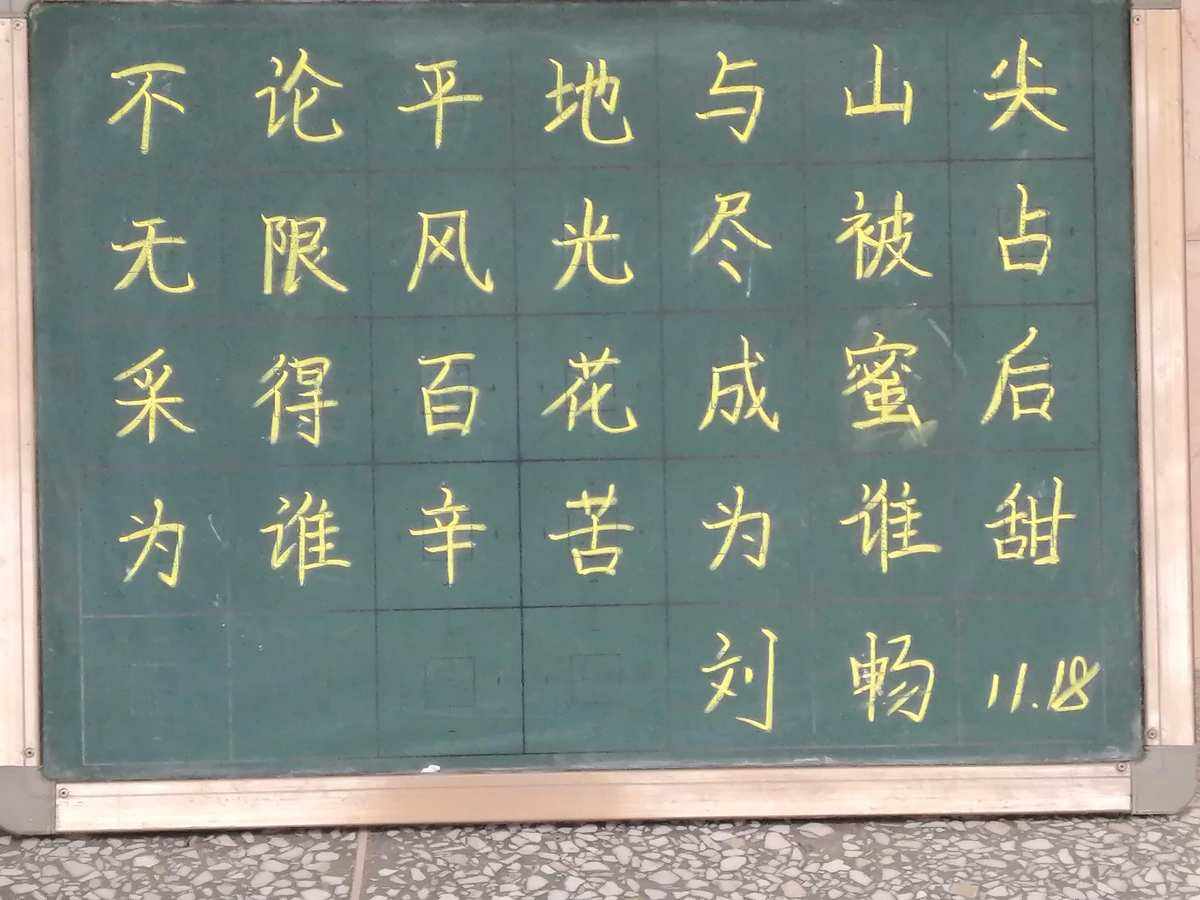 不论平地与山尖
无限风光尽被占
采得百花成蜜后
为谁辛苦为谁甜
刘畅 11.18